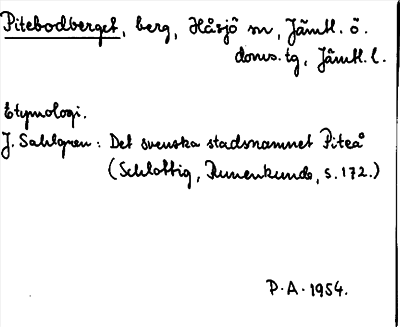 Pitebodberget, berg, Håsjö sn, Jämtl. ö.
doms.tg, Jämtl. l.
Etymologi.
J. Sahlgren: Det svenska stadsnamnet Piteå
(Schlottig, Runenkunde, s. 172.)
P.A. 1954.